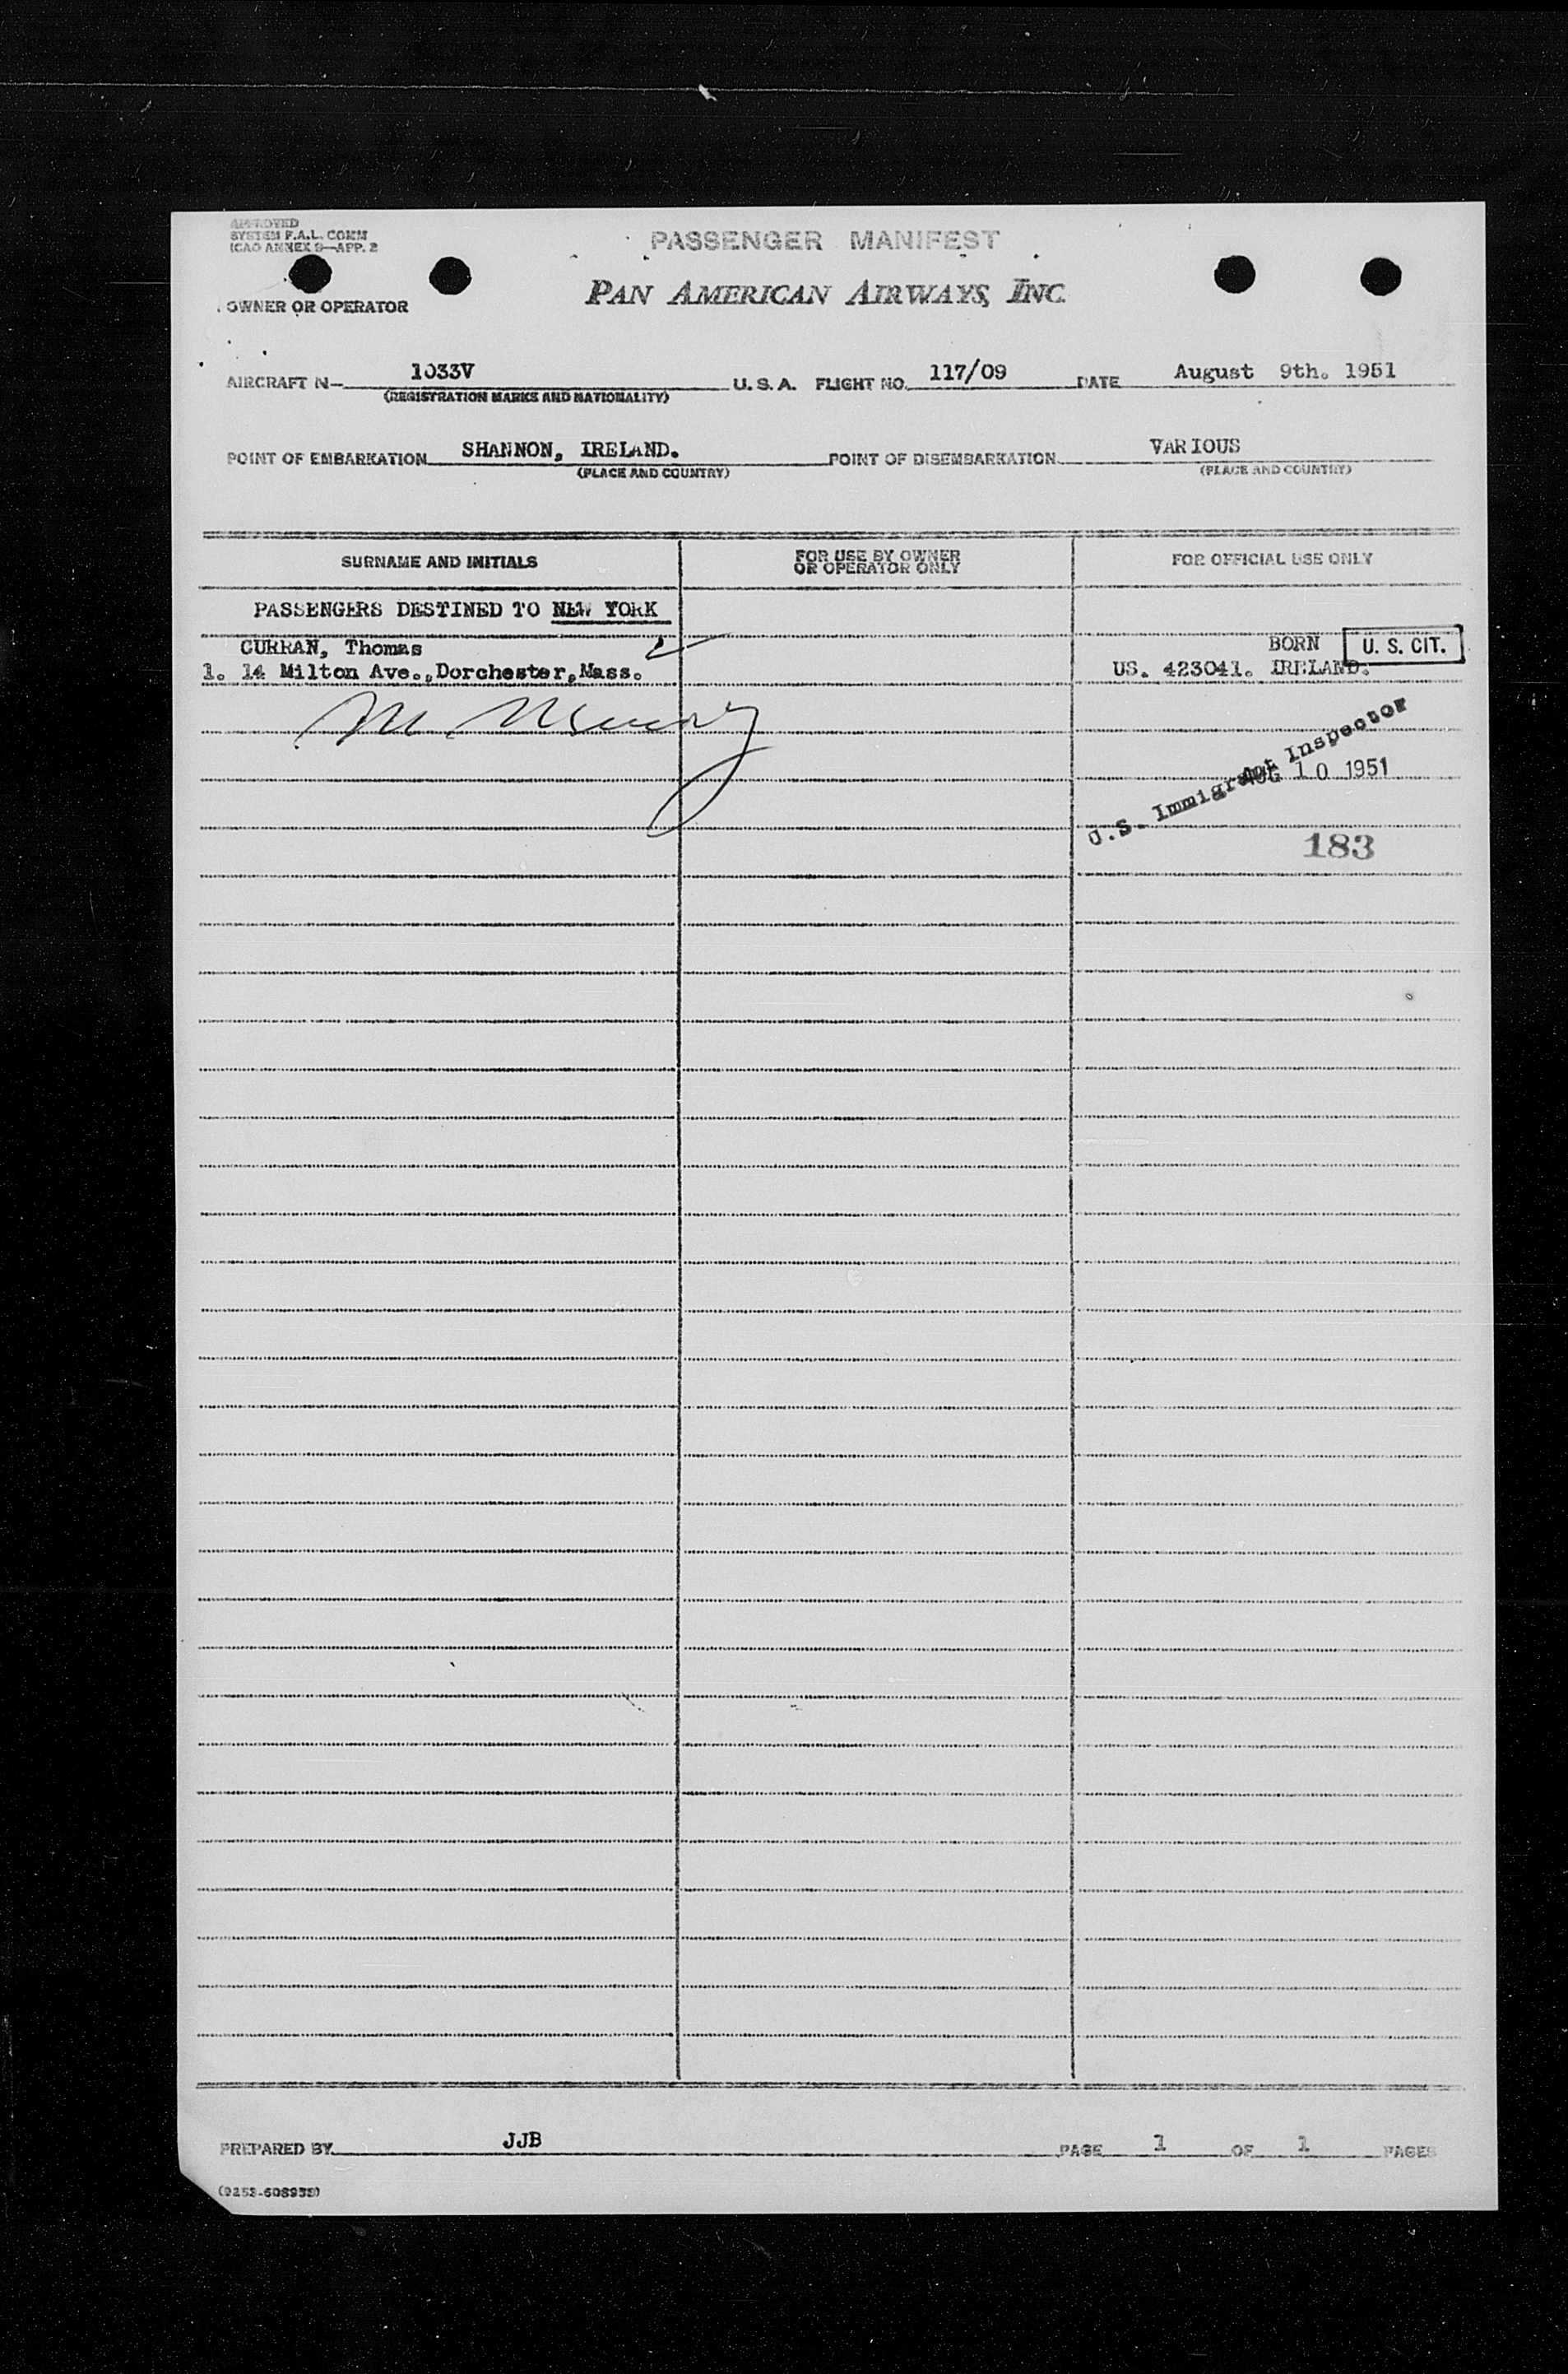 APPROVED
SYSTEM F.A.L. COMM
ICAO ANNEX 9—APP. 2
PASSENGER MANIFEST
PAN AMERICAN AIRWAYS, INC.
OWNER OR OPERATOR
AIRCRAFT N- 1033V U. S. A. FLIGHT NO. 117/09 DATE August 9th. 1951
(REGISTRATION MARKS AND NATIONALITY)
POINT OF EMBARKATION SHANNON, IRELAND. POINT OF DISEMBARKATION VARIOUS
(PLACE AND COUNTRY) (PLACE AND COUNTRY)
SURNAME AND INITIALS FOR USE BY OWNER OR OPERATOR ONLY FOR OFFICIAL USE ONLY
PASSENGERS DESTINED TO NEW YORK
CURRAN, Thomas BORN U. S. CIT.
1. 14 Milton Ave., Dorchester, Mass. US. 423041. IRELAND.
U.S. Immigrant Inspector
AUG 10 1951
183
PREPARED BY JJB PAGE 1 OF 1 PAGES